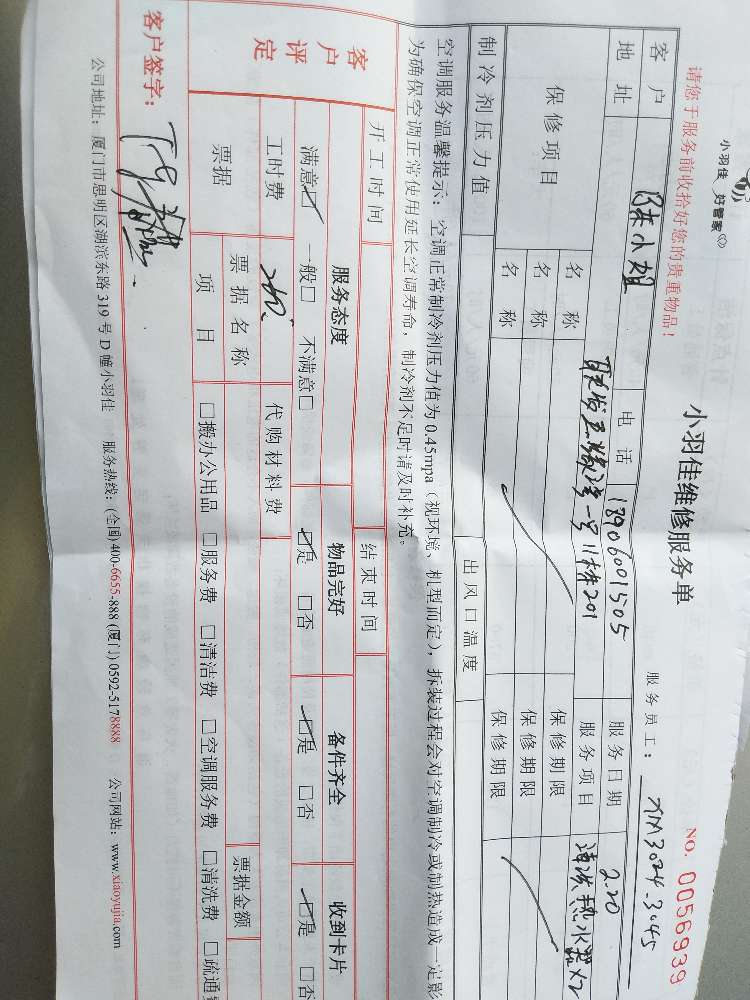 小羽佳 好管家
小羽佳维修服务单
NO. 0056939
请您于服务前收拾好您的贵重物品！
服务员工：XM3024-3045
客户 陈小姐 电话 18906001505 服务日期 2.20
地址 一号11栋201 服务项目 清洗热水器X2
保修项目 名称 保修期限
名称 保修期限
名称 保修期限
制冷剂压力值 出风口温度
空调服务温馨提示：空调正常制冷剂压力值为0.45mpa（视环境、机型而定），拆装过程会对空调制冷或制热造成一定影
为确保空调正常使用延长空调寿命，制冷剂不足时请及时补充。
开工时间 结束时间
客户评定 服务态度 物品完好 备件齐全 收到卡片
满意☑ 一般□ 不满意□ ☑是 □否 ☑是 □否 ☑是 □否
工时费 260 代购材料费
票据 票据名称 票据金额
项目 □搬办公用品 □服务费 □清洁费 □空调服务费 □清洗费 □疏通
客户签字：
公司地址：厦门市思明区湖滨东路319号D幢小羽佳 服务热线：(全国)400-6655-888 (厦门)0592-5178888 公司网站：www.xiaoyujia.com